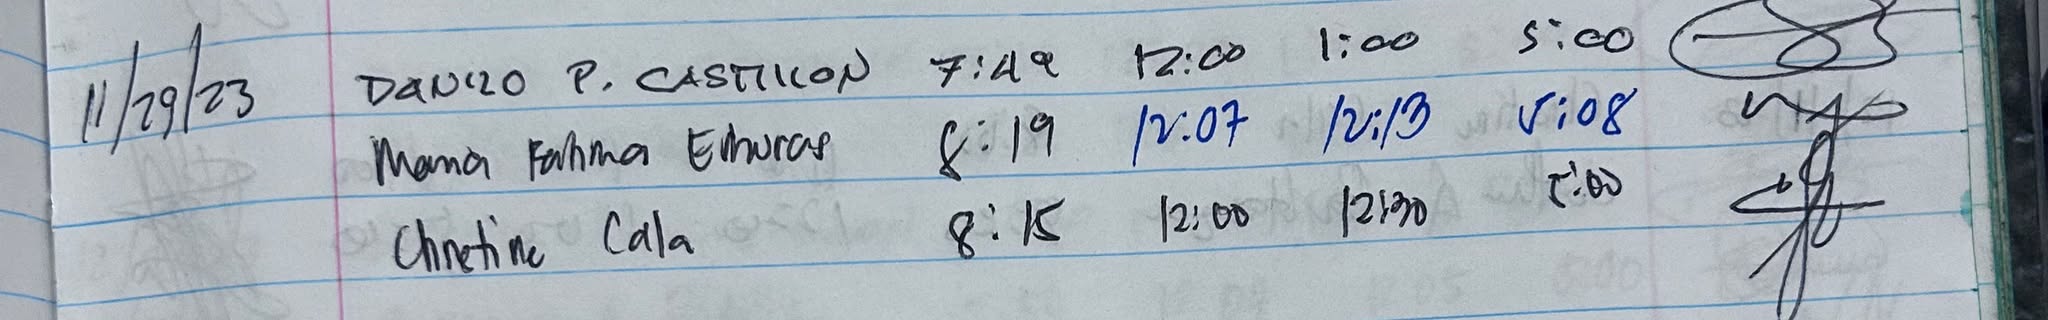 11/29/23 DANILO P. CASTILLON 7:49 12:00 1:00 5:00
Maria Fatima 8:19 12:07 12:13 5:08
Christine Cala 8:15 12:00 12:30 5:00